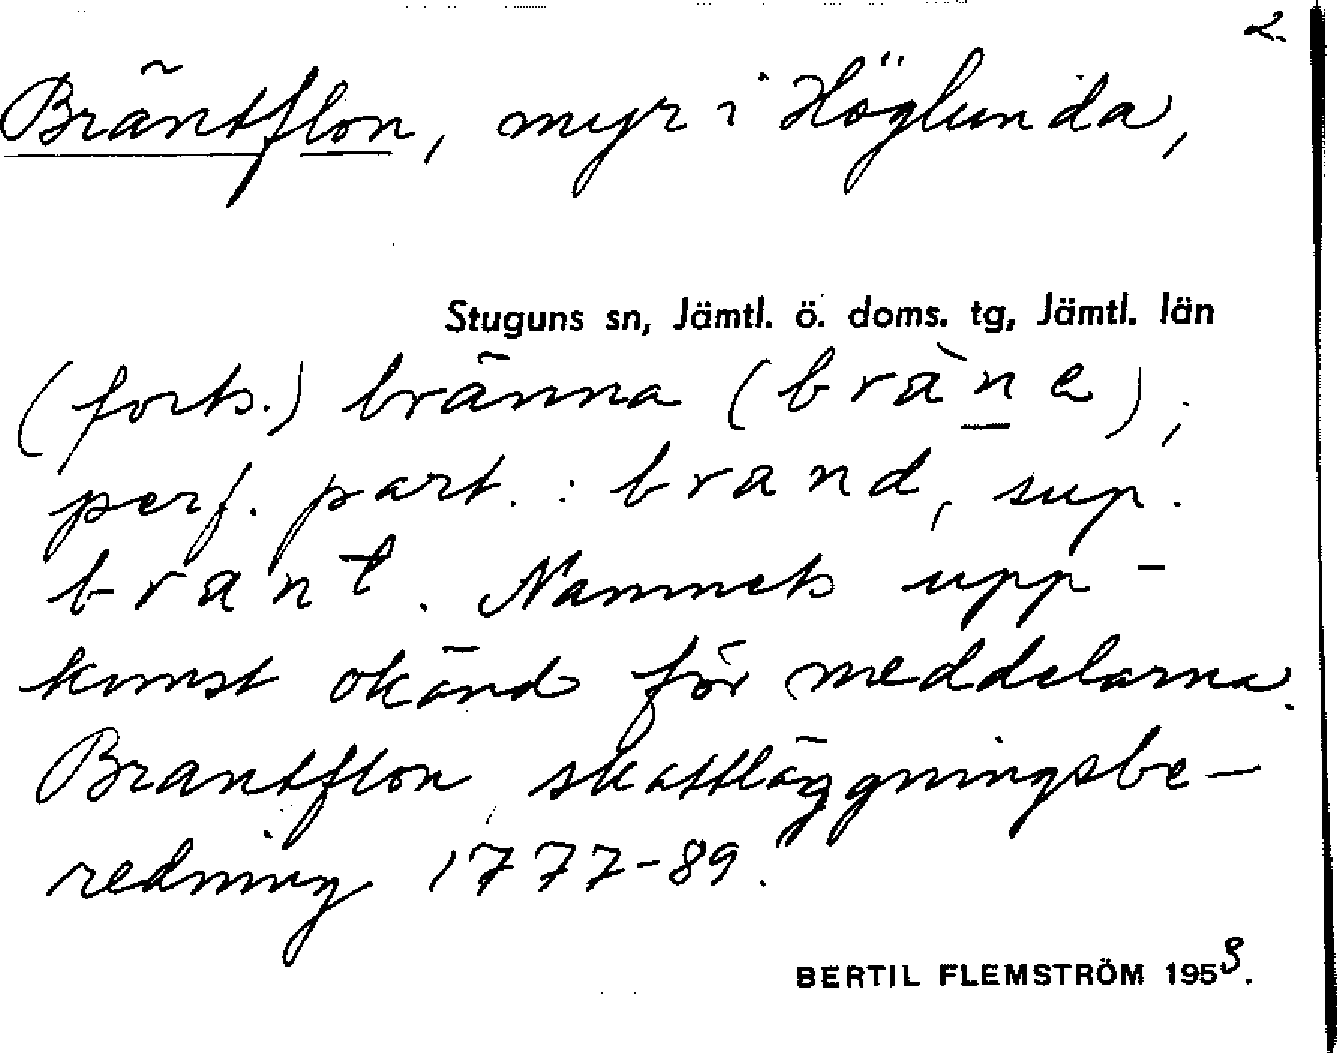 2.
Bräntflon, myr i Höglunda,
Stuguns sn, Jämtl. ö. doms. tg, Jämtl. län
(forts.) bränna (bràne);
perf. part. : brand, sup.
brant. Namnets upp-
komst okänd för meddelarna.
Brantflon, skattläggningsbe-
redning 1777-89.
BERTIL FLEMSTRÖM 1953.